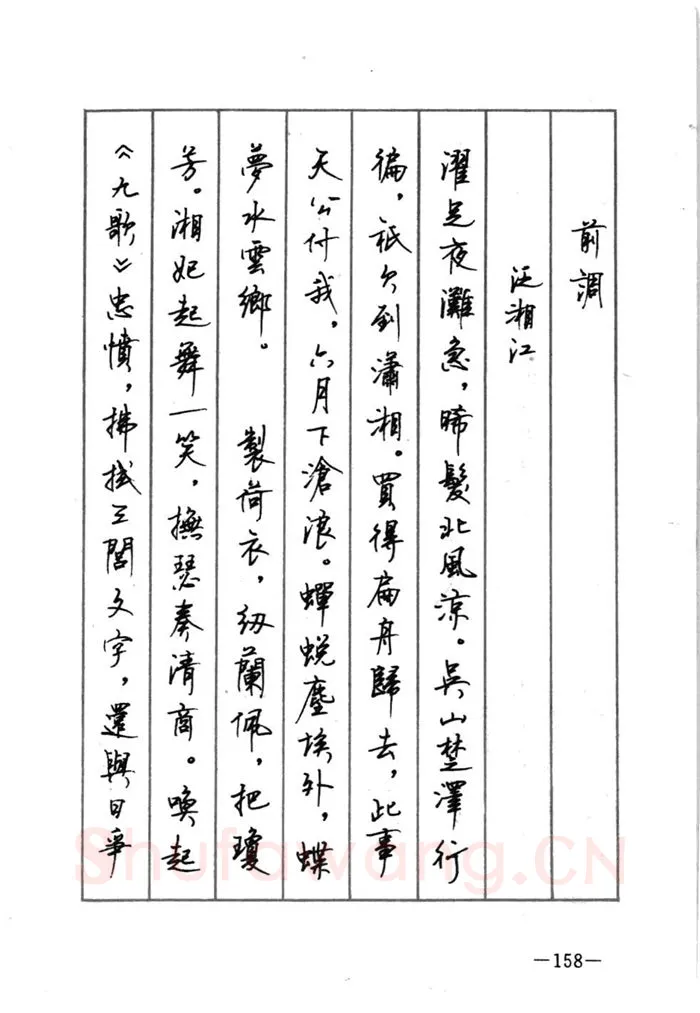 前調
泛湘江
濯足夜灘急，晞髮北風涼。吳山楚澤行
徧，祇欠到瀟湘。買得扁舟歸去，此事
天公付我，六月下滄浪。蟬蛻塵埃外，蝶
夢水雲鄉。 製荷衣，紉蘭佩，把瓊
芳。湘妃起舞一笑，撫瑟奏清商。喚起
《九歌》忠憤，拂拭三閭文字，還與日爭
Shufawang.CN
—158—